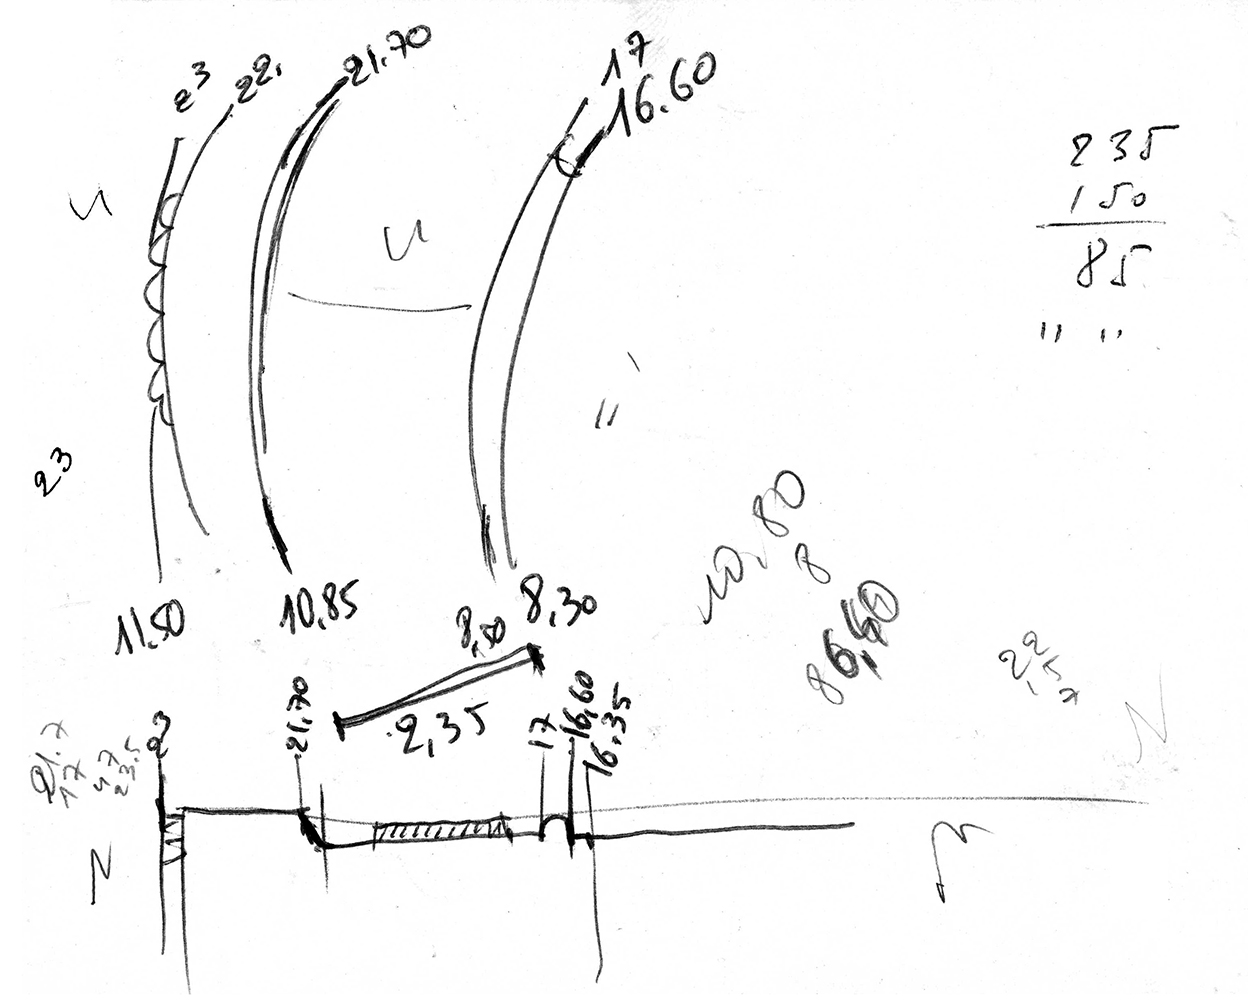 23
22.
21.70
17
16.60
235
150
85
" "
23
"
11.50
10,85
8,50
8,30
10.80
8
2,35
21.70
23
17
16,60
16,35
21.7
17
4,7
23.5
22